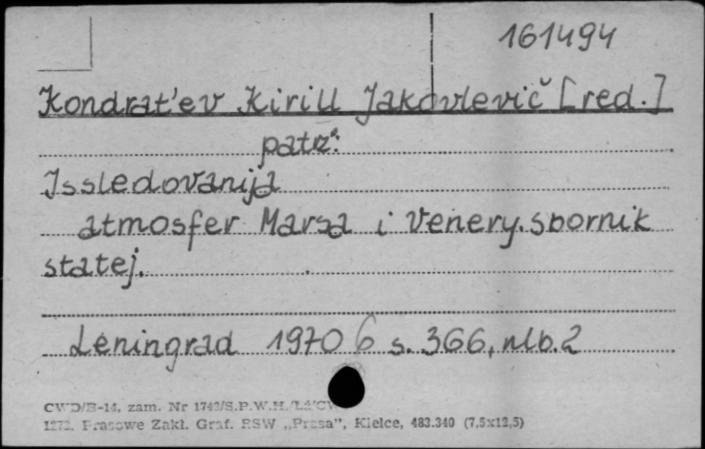 161494
Kondrat'ev Kirill Jakovlevič [red.]
patrz:
Issledovanija
atmosfer Marsa i Venery. Sbornik
statej.
Leningrad 1970 6 s. 366, nlb. 2
CWD/B-14, zam. Nr
Prasowe Zakł. Graf. RSW „Prasa”, Kielce, 483.340 (7,5x12,5)